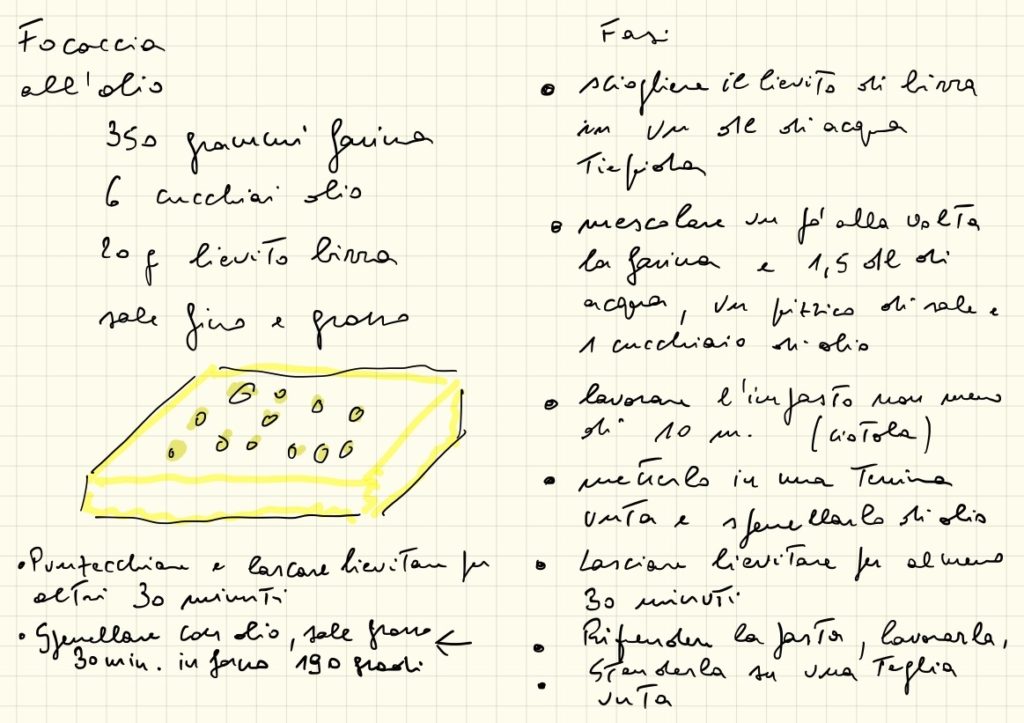 Focaccia
all'olio
350 grammi farina
6 cucchiai olio
20 g lievito birra
sale fino e grosso
Fasi
• sciogliere il lievito di birra
in un dl di acqua
Tiepida
• mescolare un pò alla volta
la farina e 1,5 dl di
acqua, un pizzico di sale e
1 cucchiaio di olio
• lavorare l'impasto non meno
di 10 m. (ciotola)
• metterlo in una Terrina
unta e spenellarlo di olio
• Lasciare lievitare per almeno
30 minuti
• Riprendere la pasta, lavorarla,
stenderla su una Teglia
• unta
• Puntecchiare e lascare lievitare per
altri 30 minuti
• Spenellare con olio, sale grosso ←
30 min. in forno 190 gradi